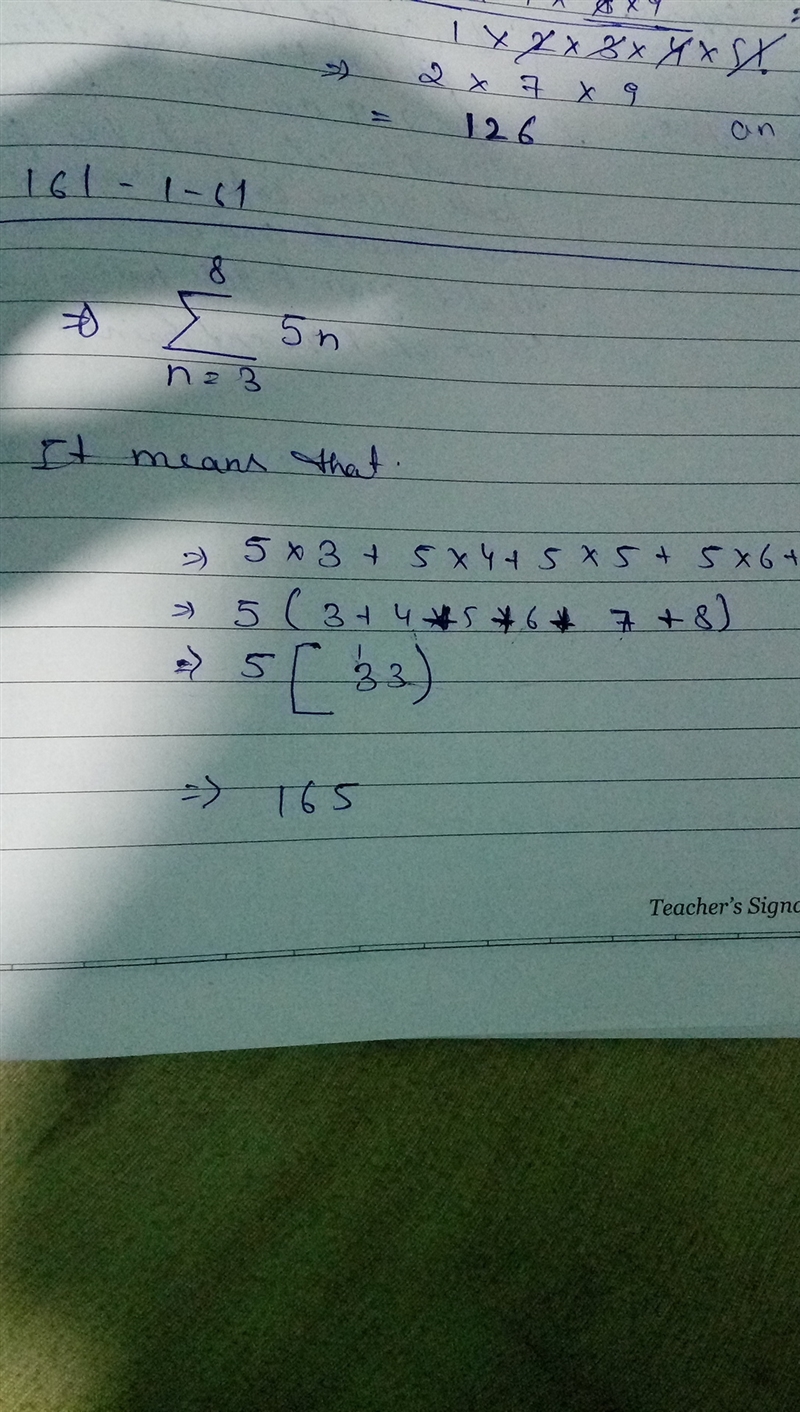 1 × 2 × 3 × 4 × 5!
⇒ 2 × 7 × 9
= 126 an
161 - 1-61
⇒ 8
∑ 5n
n = 3
It means that.
⇒ 5 × 3 + 5 × 4 + 5 × 5 + 5 × 6 +
⇒ 5 ( 3 + 4 + 5 + 6 + 7 + 8 )
⇒ 5 [ 33 )
⇒ 165
Teacher's Signa